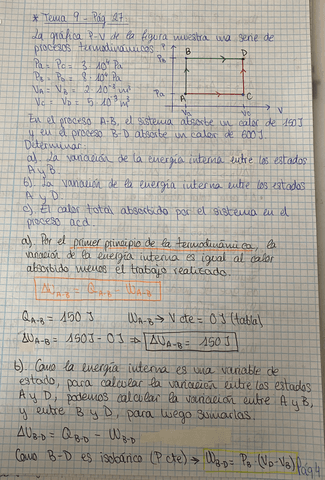 * Tema 9 - Pág 27.
La gráfica P-V de la figura muestra una serie de
procesos termodinámicos.
PA = PC = 3·10⁴ Pa
PB = PD = 8·10⁴ Pa
VA = VB = 2·10⁻³ m³
VC = VD = 5·10⁻³ m³
P
PB
PA
B
D
A
C
VA
VC
V
En el proceso A-B, el sistema absorbe un calor de 150 J
y en el proceso B-D absorbe un calor de 600 J
Determinar:
a). La variación de la energía interna entre los estados
A y B.
b). La variación de la energía interna entre los estados
A y D.
c). El calor total absorbido por el sistema en el
proceso acd.
a). Por el primer principio de la termodinámica, la
variación de la energía interna es igual al calor
absorbido menos el trabajo realizado.
ΔUA-B = QA-B - WA-B
QA-B = 150 J WA-B → V cte = 0 J (tabla)
ΔUA-B = 150 J - 0 J ⇒ ΔUA-B = 150 J
b). Como la energía interna es una variable de
estado, para calcular la variación entre los estados
A y D, podemos calcular la variación entre A y B,
y entre B y D, para luego sumarlas.
ΔUB-D = QB-D - WB-D
Como B-D es isobárico (P cte) → WB-D = PB · (VD - VB)
Pág 4